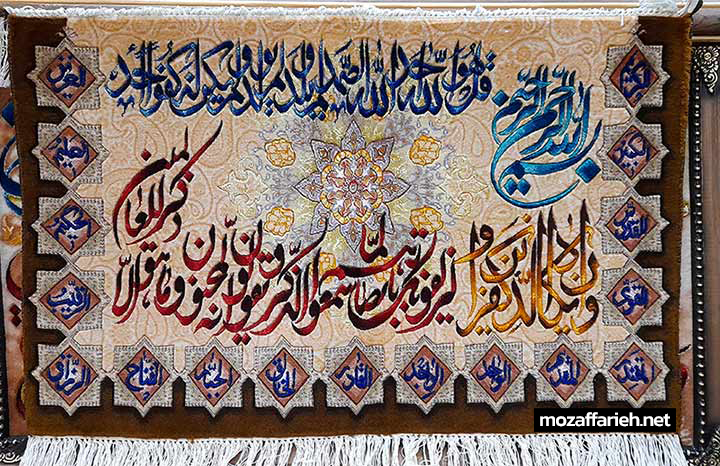 بسم الله الرحمن الرحیم
قل هو الله احد الله الصمد لم یلد ولم یولد ولم یکن له کفوا احد
وان یکاد الذین کفروا لیزلقونک بابصارهم لما سمعوا الذکر ویقولون انه لمجنون وما هو الا
ذکر للعالمین
العزیز
العلیم
الحکیم
الرقیب
الرزاق
الفتاح
الجبار
الخالق
القادر
الواحد
الواجد
المقدم
المقتدر
القوی
القدوس
mozaffarieh.net